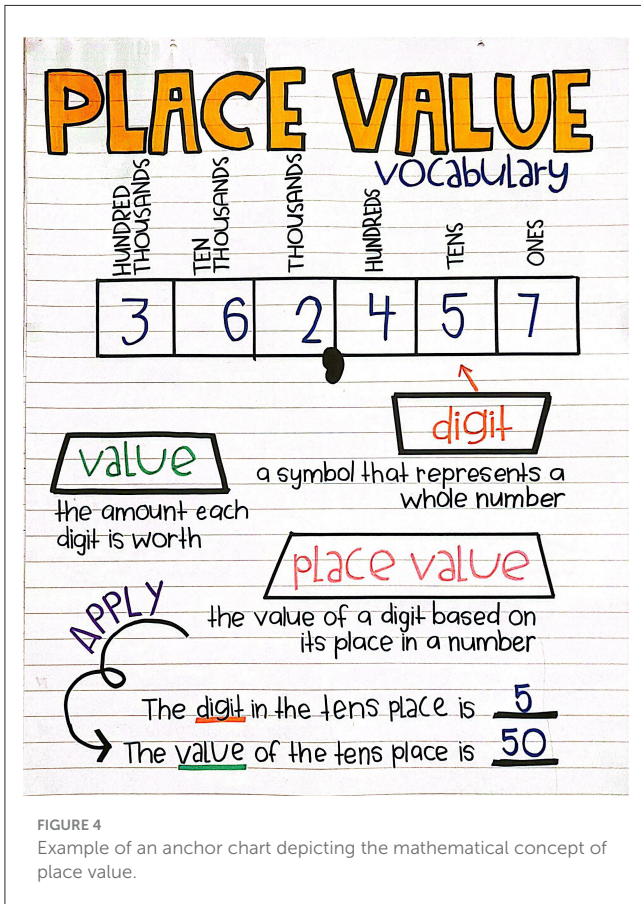 PLACE VALUE
vocabulary
HUNDRED
THOUSANDS
TEN
THOUSANDS
THOUSANDS
HUNDREDS
TENS
ONES
3 6 2 , 4 5 7
digit
a symbol that represents a
whole number
value
the amount each
digit is worth
place value
the value of a digit based on
its place in a number
APPLY
The digit in the tens place is 5
The value of the tens place is 50
FIGURE 4
Example of an anchor chart depicting the mathematical concept of
place value.